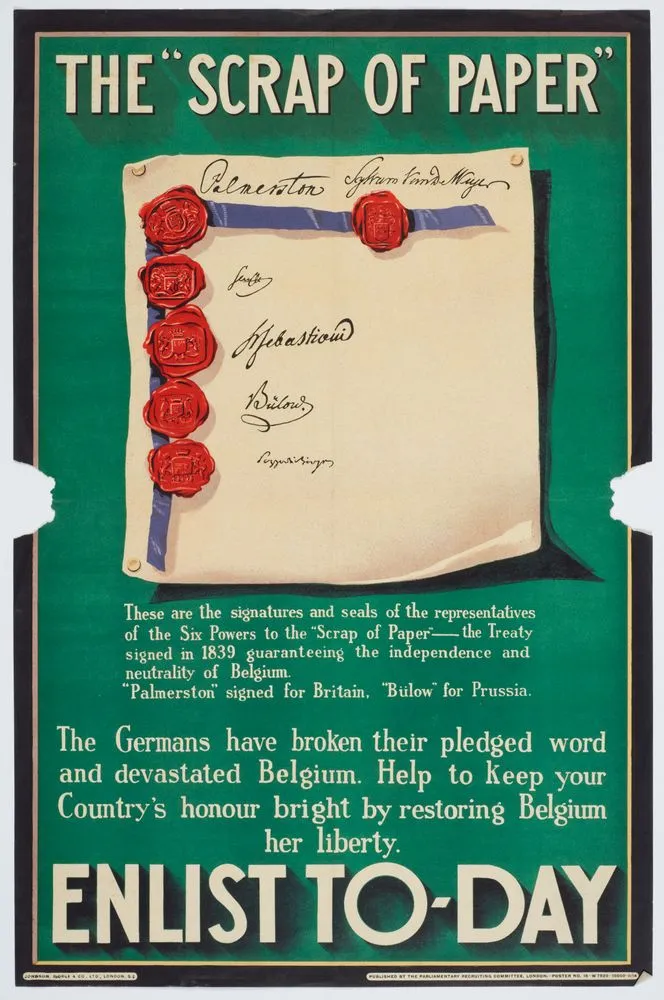 THE "SCRAP OF PAPER"
Palmerston Sylvain Van De Weyer
Senfft
H Sebastiani
Bülow.
These are the signatures and seals of the representatives
of the Six Powers to the "Scrap of Paper"— the Treaty
signed in 1839 guaranteeing the independence and
neutrality of Belgium.
"Palmerston" signed for Britain, "Bülow" for Prussia.
The Germans have broken their pledged word
and devastated Belgium. Help to keep your
Country's honour bright by restoring Belgium
her liberty.
ENLIST TO-DAY
LTD., LONDON, S.E.
PUBLISHED BY THE PARLIAMENTARY RECRUITING COMMITTEE, LONDON.-POSTER NO. 15